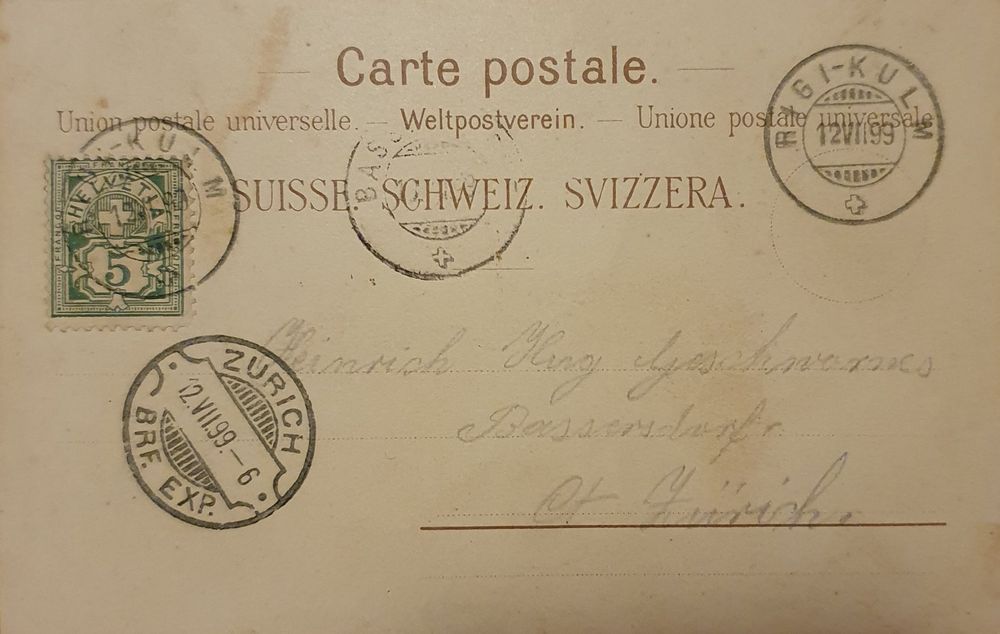 Carte postale.
Union postale universelle. — Weltpostverein. — Unione postale universale
SUISSE. SCHWEIZ. SVIZZERA.
RIGI-KULM
12 VII 99
I-KULM
FRANCO
HELVETIA
5
BASS
ZÜRICH
12.VII.99.–6
BRF. EXP.
Heinrich Hug Geschwornes
Bassersdorf.
Ct Zürich.